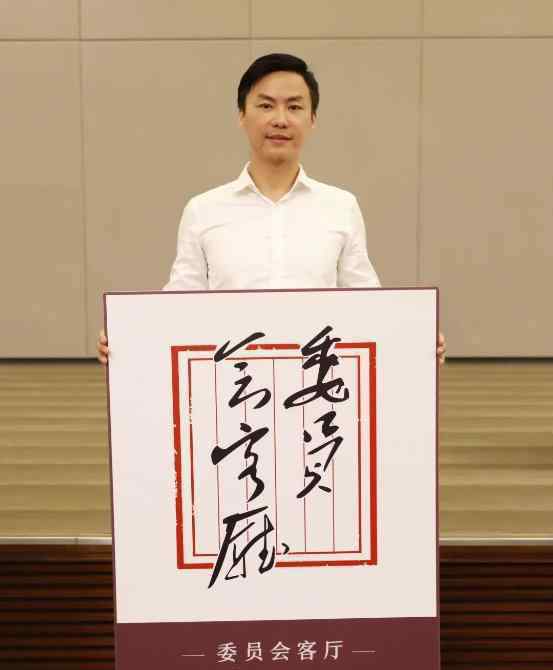 委员
会客厅
— 委员会客厅 —